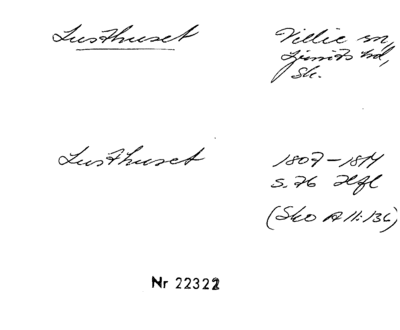 Lusthuset
Villie sn,
Ljunits hd,
Sk.
Lusthuset
1807-1814
s. 76 Hfl
(Sko A II:136)
Nr 22322